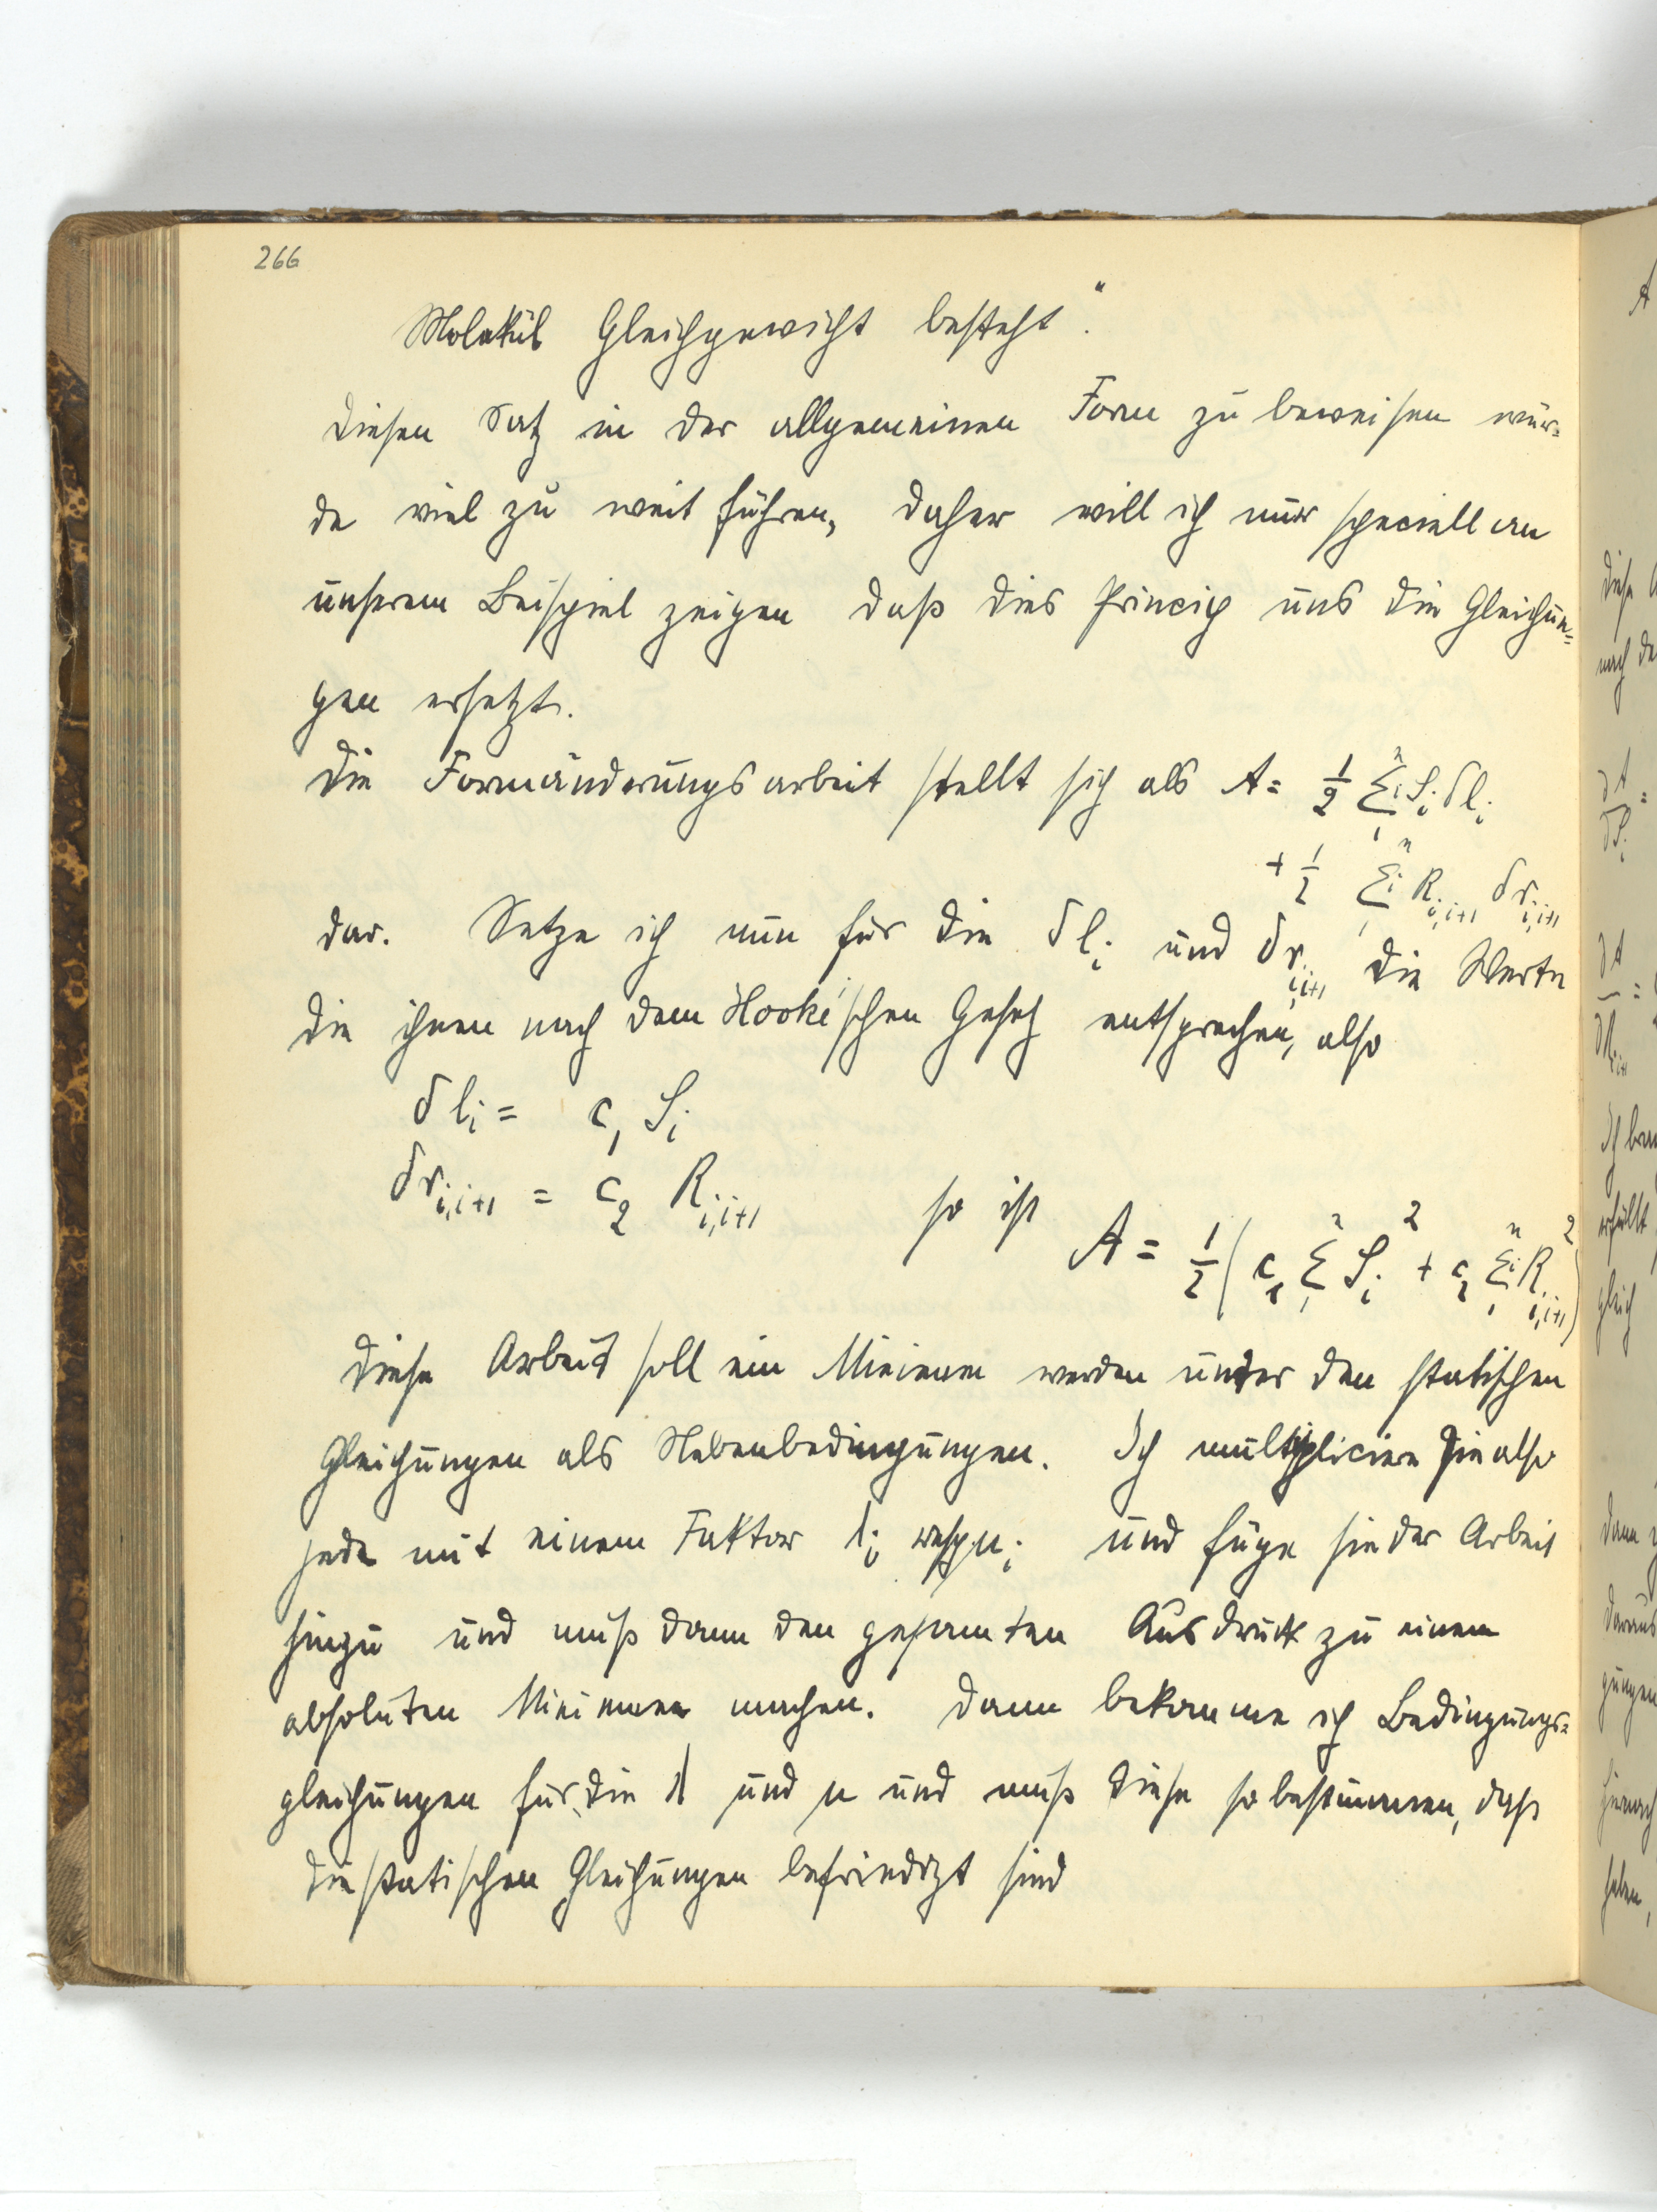 266
Molekül Gleichgewicht besteht".
Diesen Satz in der allgemeinen Form zu beweisen wür=
de viel zu weit führen, daher will ich nur speciell an
unserem Beispiel zeigen daß dies Princip uns die Gleichun=
gen ersetzt.
Die Formänderungsarbeit stellt sich als A = 1/2 Σ_1^n i S_i δl_i
+ 1/2 Σ_1^n i R_{i,i+1} δr_{i,i+1}
dar. Setze ich nun für die δl_i und δr_{i,i+1} die Werte
die ihnen nach dem Hooke'schen Gesetz entsprechen, also
δl_i = c_1 S_i
δr_{i,i+1} = c_2 R_{i,i+1} so ist A = 1/2 (c_1 Σ_1^n S_i^2 + c_2 Σ_1^n i R_{i,i+1}^2)
Diese Arbeit soll ein Minimum werden unter den statischen
Gleichungen als Nebenbedingungen. Ich multipliciere sie also
jede mit einem Faktor λ_i resp. μ_i und füge sie der Arbeit
hinzu und muß dann den gesamten Ausdruck zu einem
absoluten Minimum machen. Dann bekomme ich Bedingungs=
gleichungen für die λ und μ und muß diese so bestimmen, daß
die statischen Gleichungen befriedigt sind